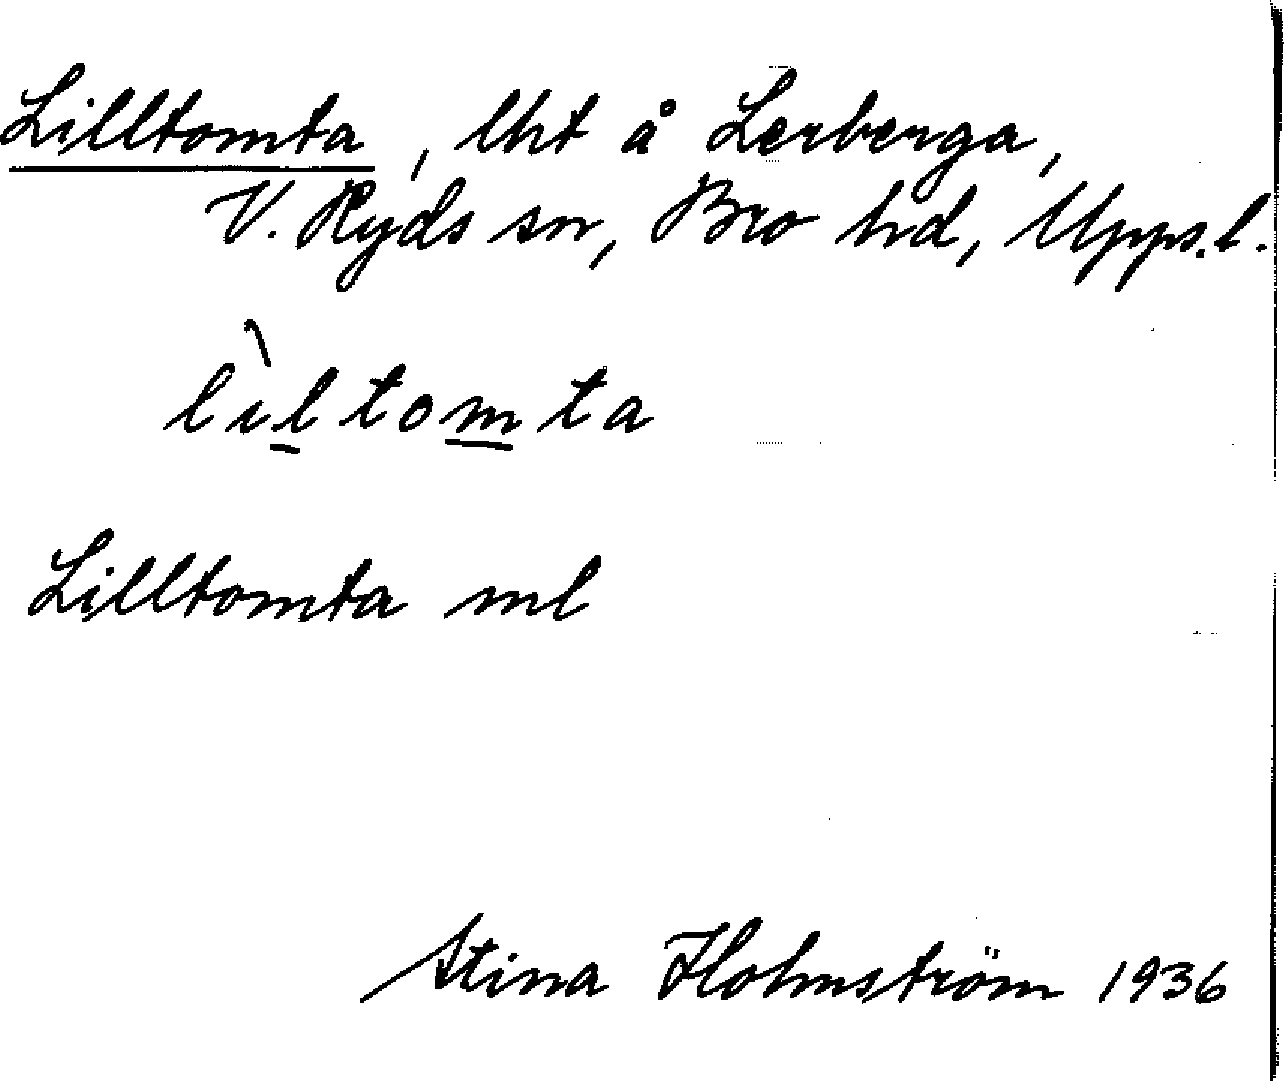 Lilltomta, lht å Lerberga,
V. Ryds sn, Bro hd, Upps.l.
lìltomta
Lilltomta ml
Stina Holmström 1936